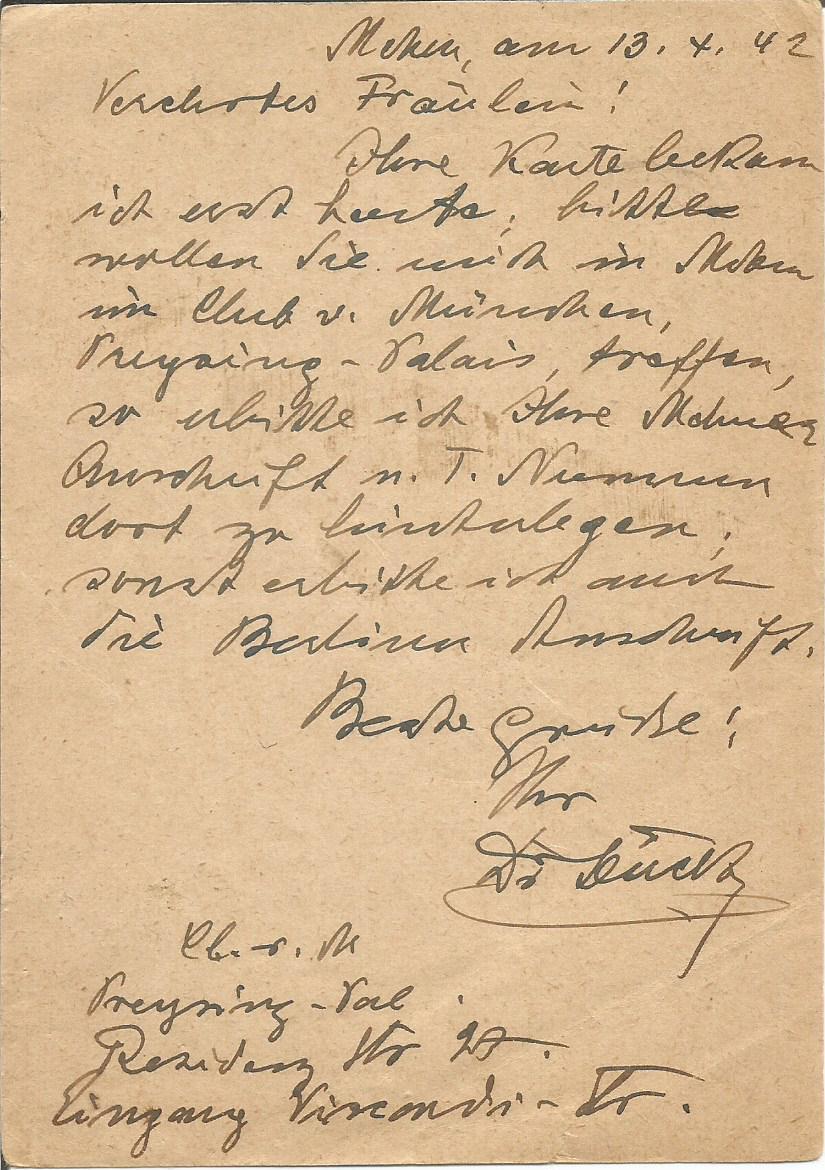 Mchen, am 13. 4. 42
Verehrtes Fräulein!
Ihre Karte bekam
ich erst heute, bitte
wollen Sie mich in Mchen
im Club v. München,
Preysing-Palais, treffen,
so erbitte ich Ihre Mchner
Anschrift u. T. Nummer
dort zu hinterlegen,
sonst erbitte ich auch
die Berliner Anschrift.
Beste Grüße!
Ihr
Dr
Cl. v. M
Preysing-Pal.
Residenz Str 27.
Eingang Viscardi-Str.